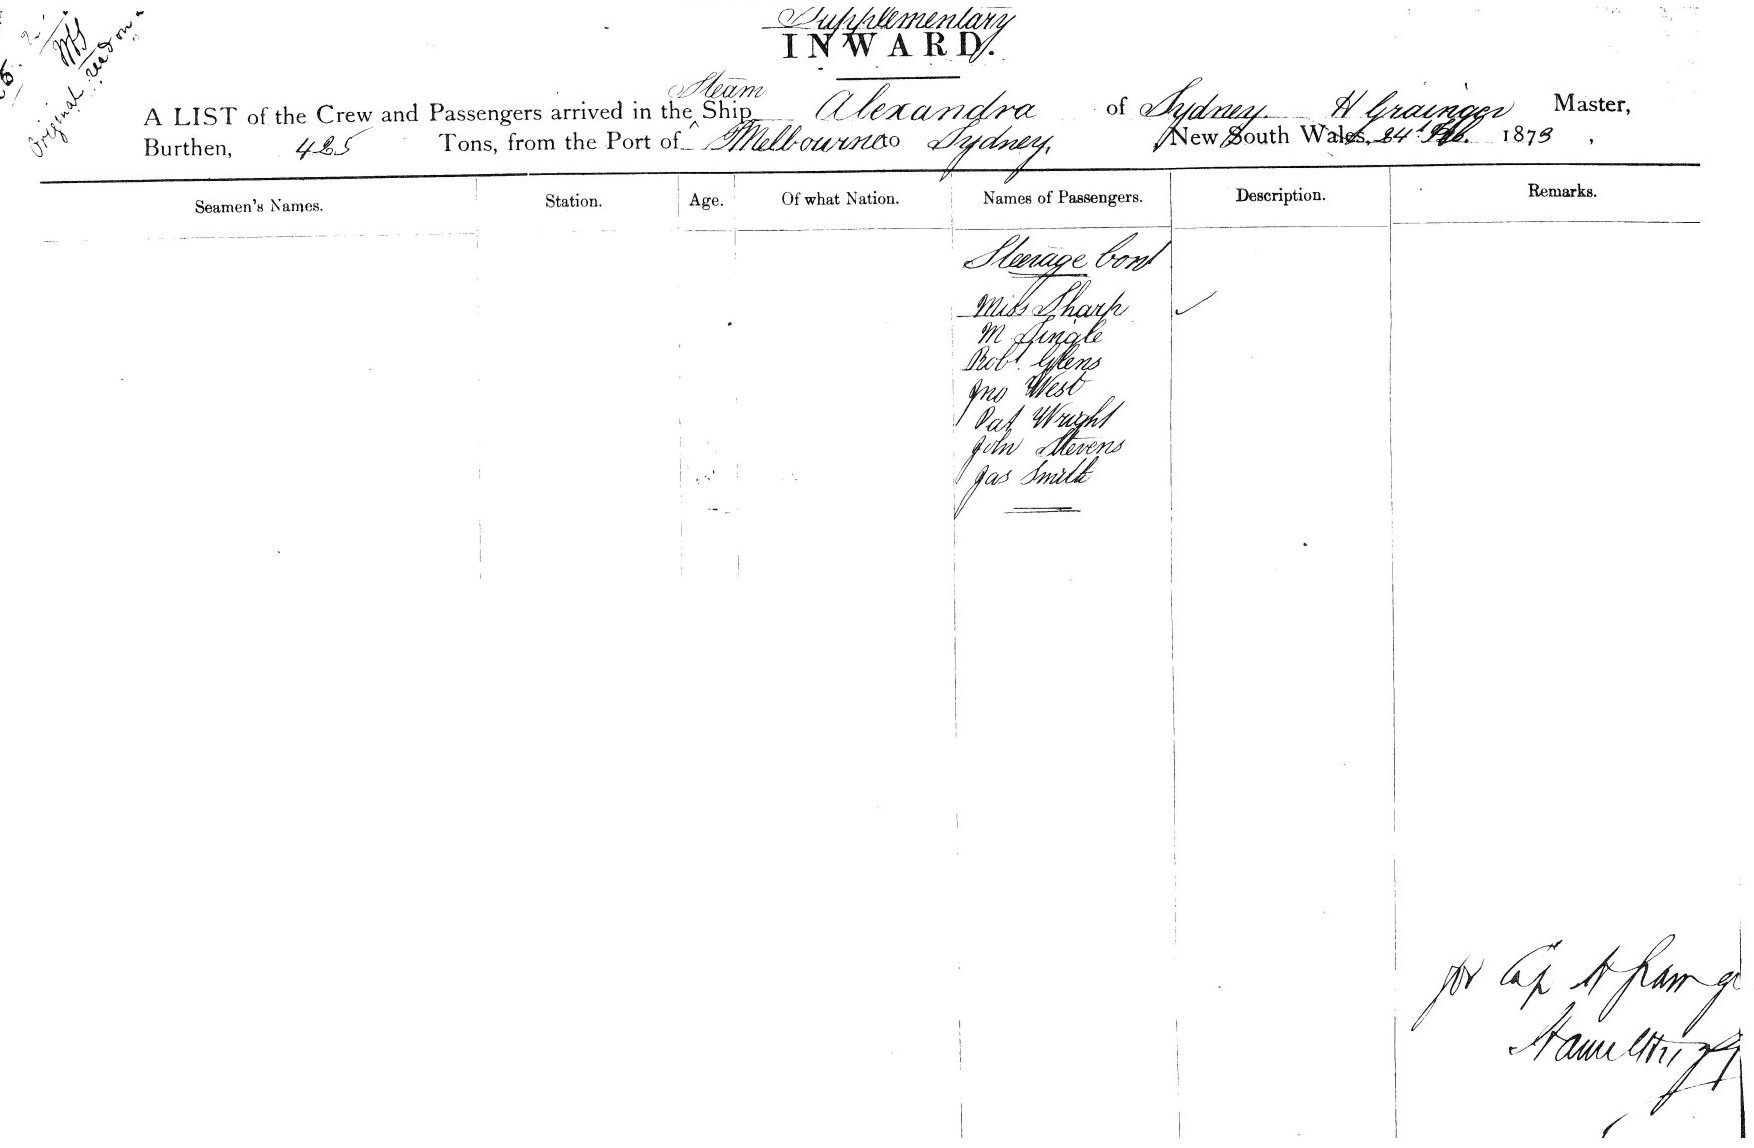 Supplementary
INWARD.
Original read on
Steam
A LIST of the Crew and Passengers arrived in the Ship Alexandra of Sydney H Grainger Master,
Burthen, 425 Tons, from the Port of Melbourne to Sydney, New South Wales, 24th Feb. 1873,
Seamen's Names. Station. Age. Of what Nation. Names of Passengers. Description. Remarks.
Steerage Cont
Miss Sharp ✓
M Single
Robt. Glens
Jno West
Pat Wright
John Stevens
Jas Smith
for Cap H Graing